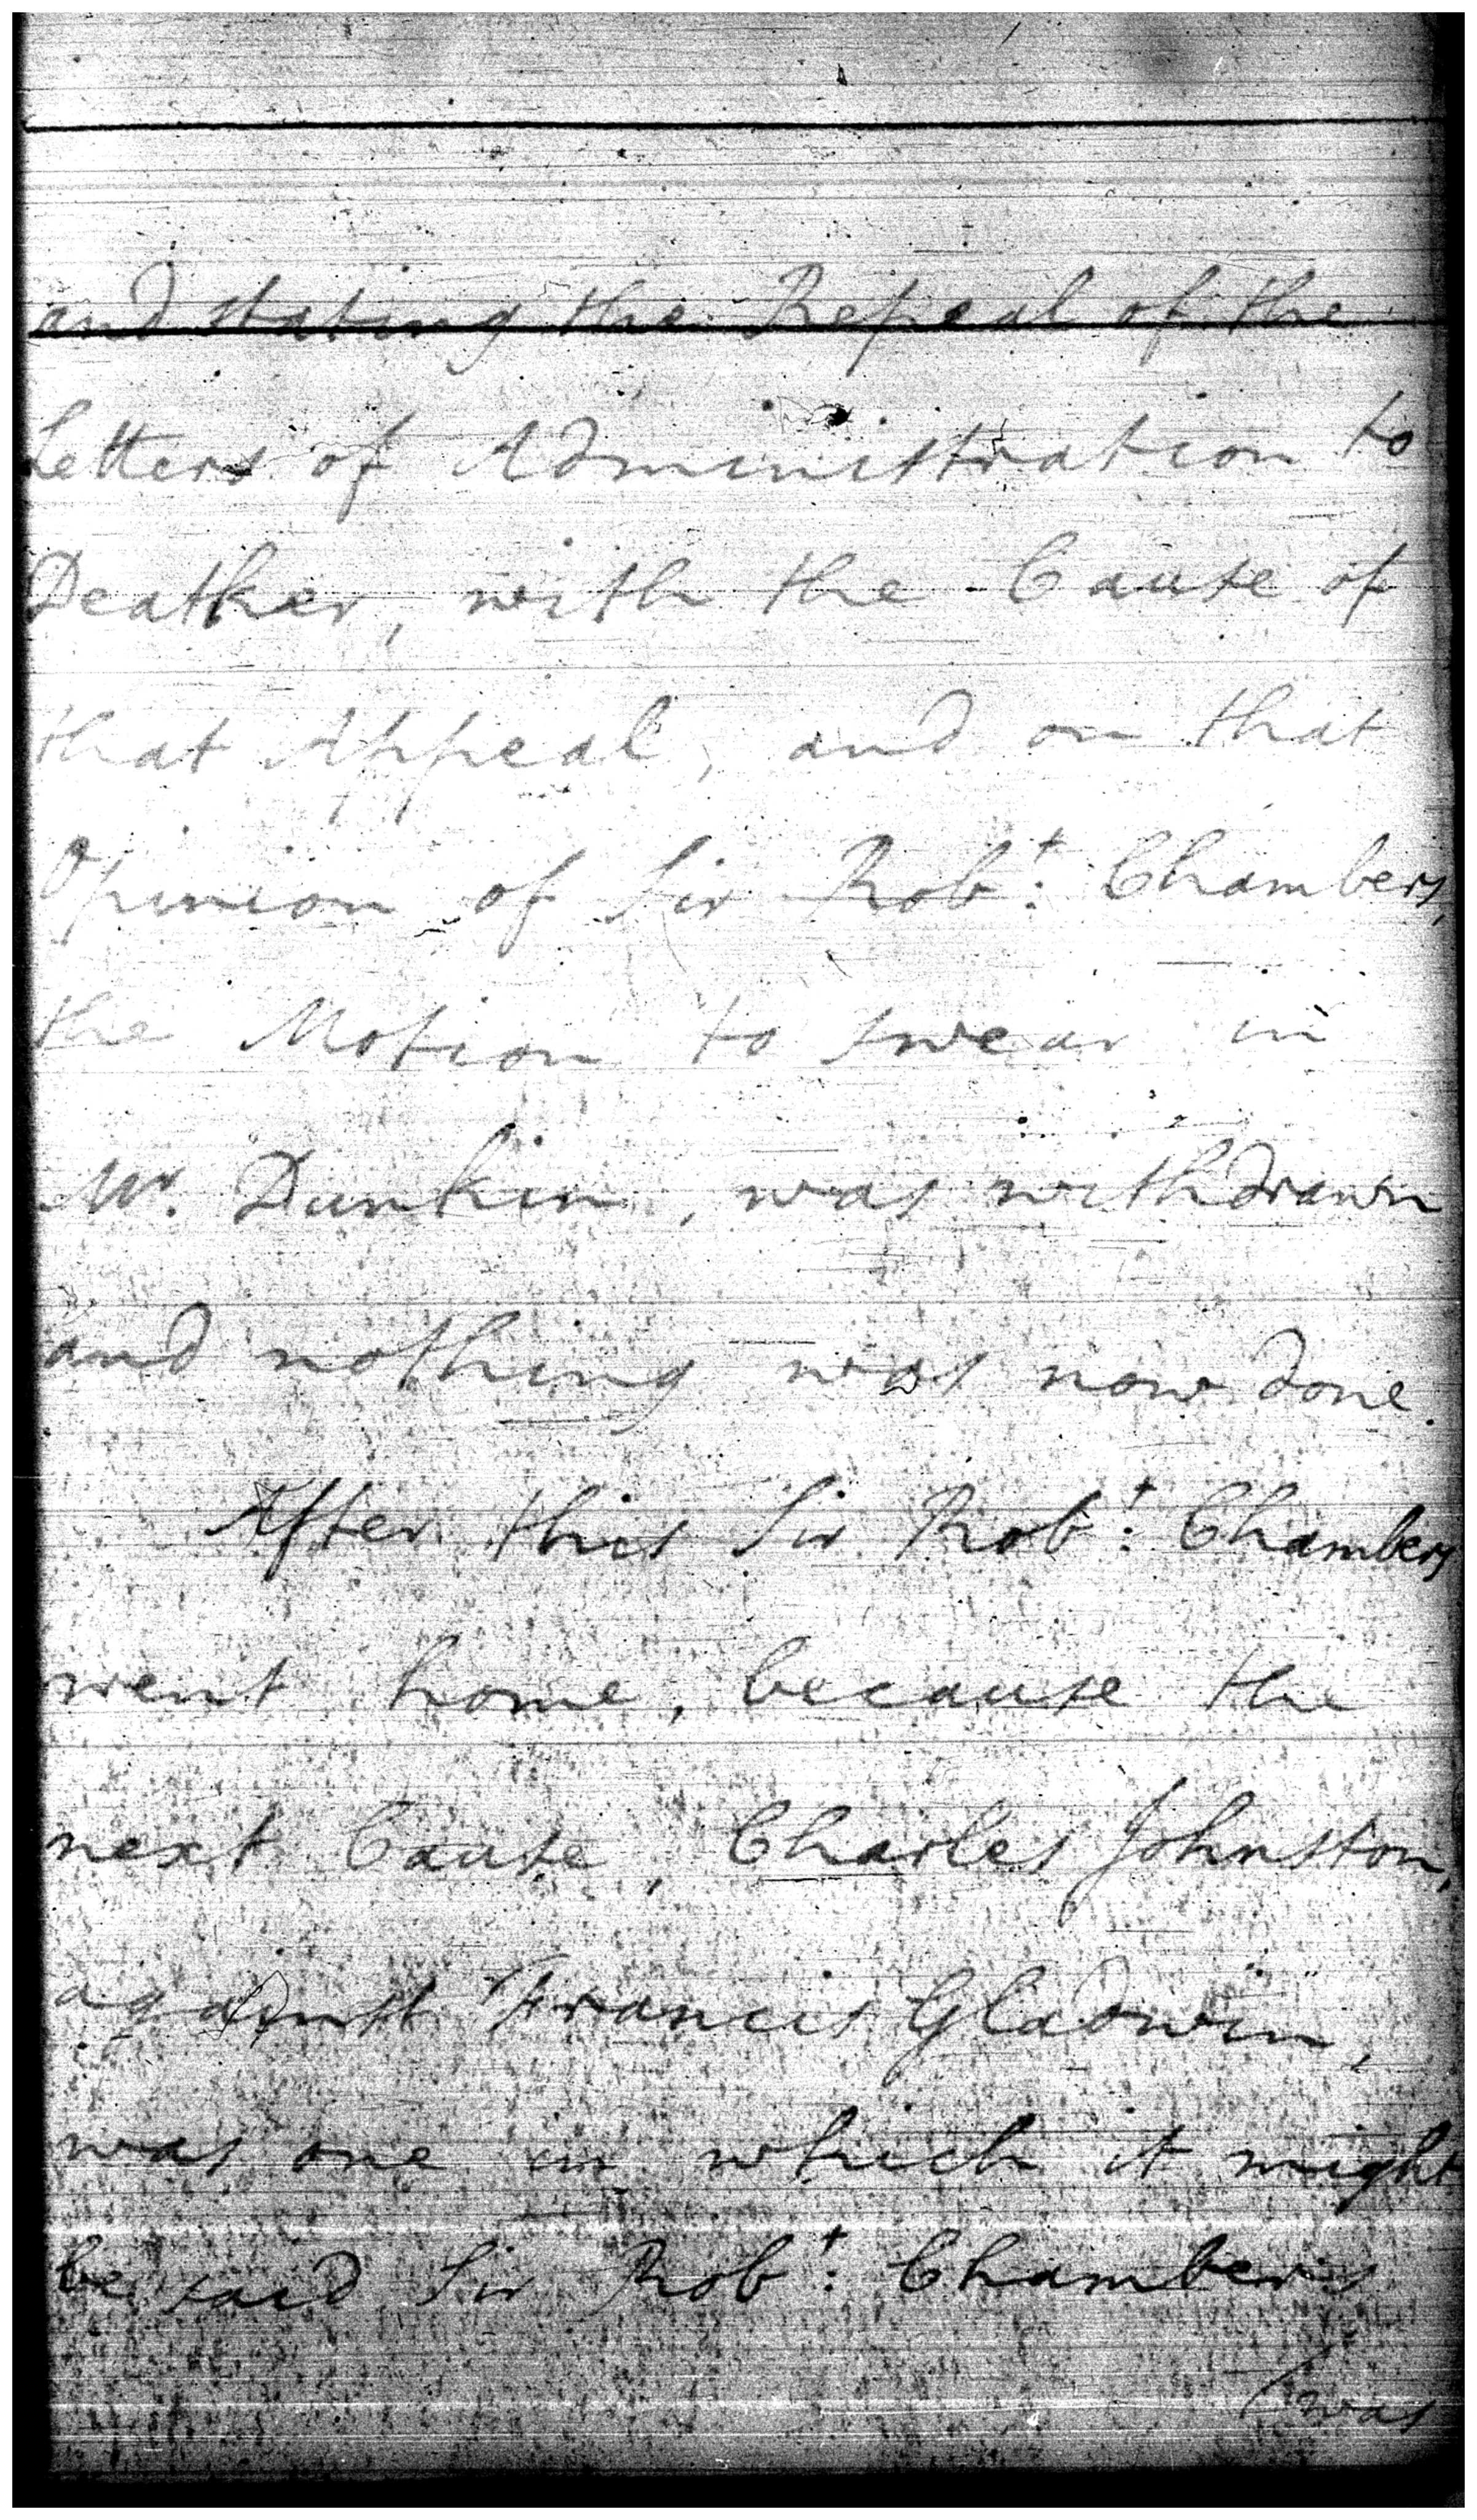 and stating the Repeal of the
Letters of Administration to
Deather, with the Cause of
that Appeal, and on that
Opinion of Sir Rob.t Chambers,
the Motion to swear in
Mr. Dunkin, was withdrawn
and nothing was now done.
After this Sir Rob.t Chambers
went home, because the
next Cause, Charles Johnston,
against Francis Gladwin,
was one in which it might
be said Sir Rob.t Chambers
(was